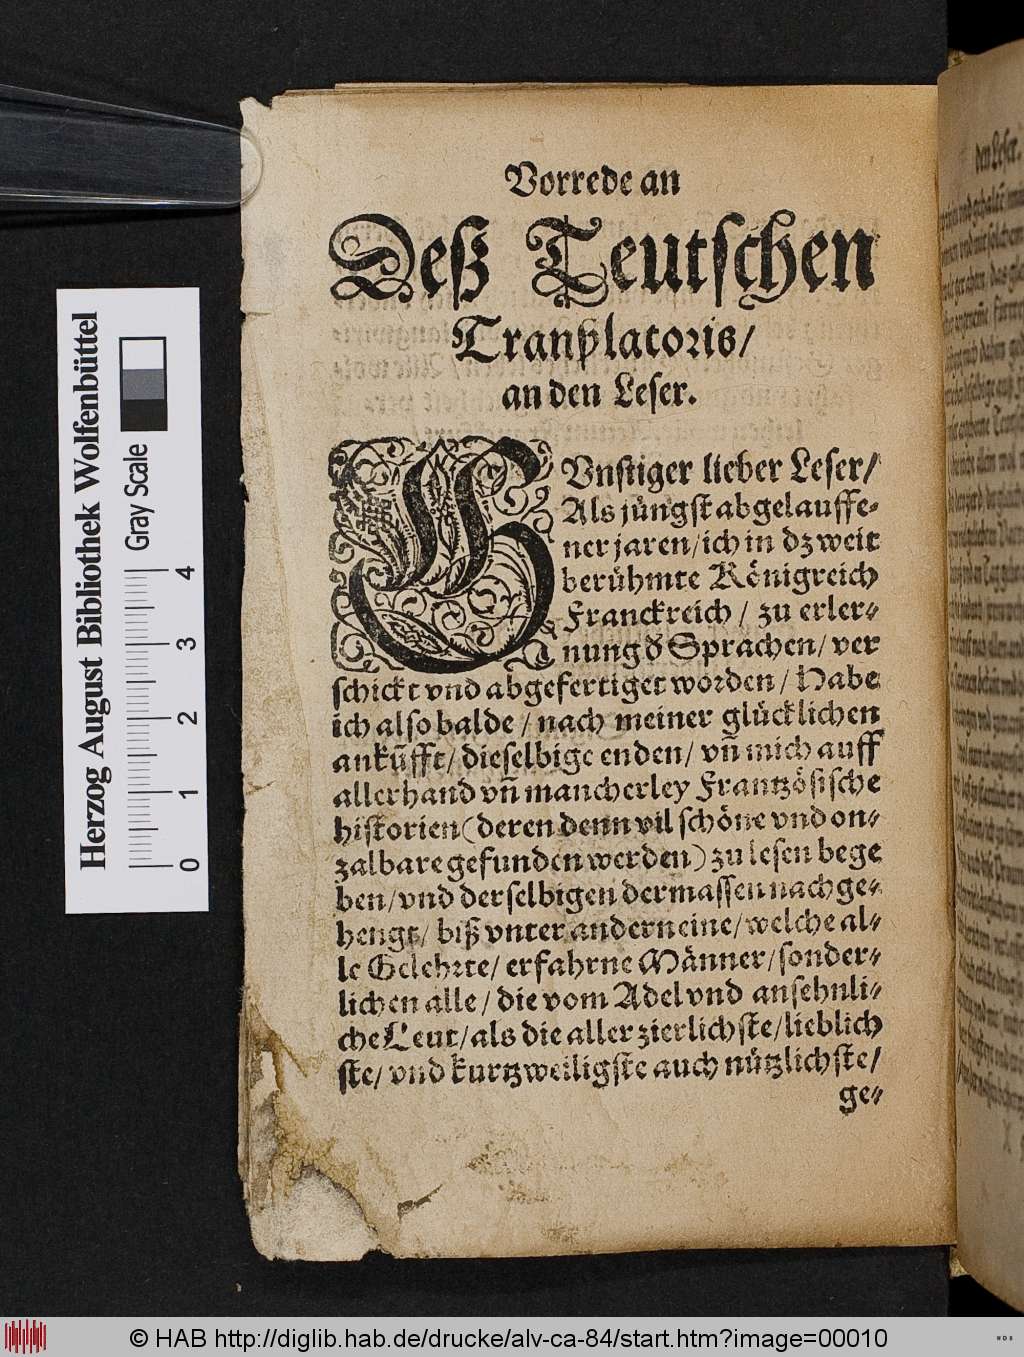 Vorrede an
Deß Teutschen
Tranßlatoris/
an den Leser.
GVnstiger lieber Leser/
Als jüngst abgelauffe-
ner jaren/ich in dz weit
berühmte Königreich
Franckreich / zu erler-
nung đ Sprachen/ ver
schickt vnd abgefertiget worden / Habe
ich also balde / nach meiner glücklichen
ankũfft/ dieselbige enden/ vñ mich auff
allerhand vñ mancherley Frantzösische
historien (deren denn vil schöne vnd on-
zalbare gefunden werden) zu lesen bege
ben/vnd derselbigen dermassen nachge-
hengt/ biß vnter andern eine/welche al-
le Gelehrte/ erfahrne Männer/sonder-
lichen alle / die vom Adel vnd ansehnli-
che Leut/als die aller zierlichste/lieblich
ste/ vnd kurtzweiligste auch nützlichste/
ge-
den Leser.
Herzog August Bibliothek Wolfenbüttel
Gray Scale
0 1 2 3 4
© HAB http://diglib.hab.de/drucke/alv-ca-84/start.htm?image=00010
WDB